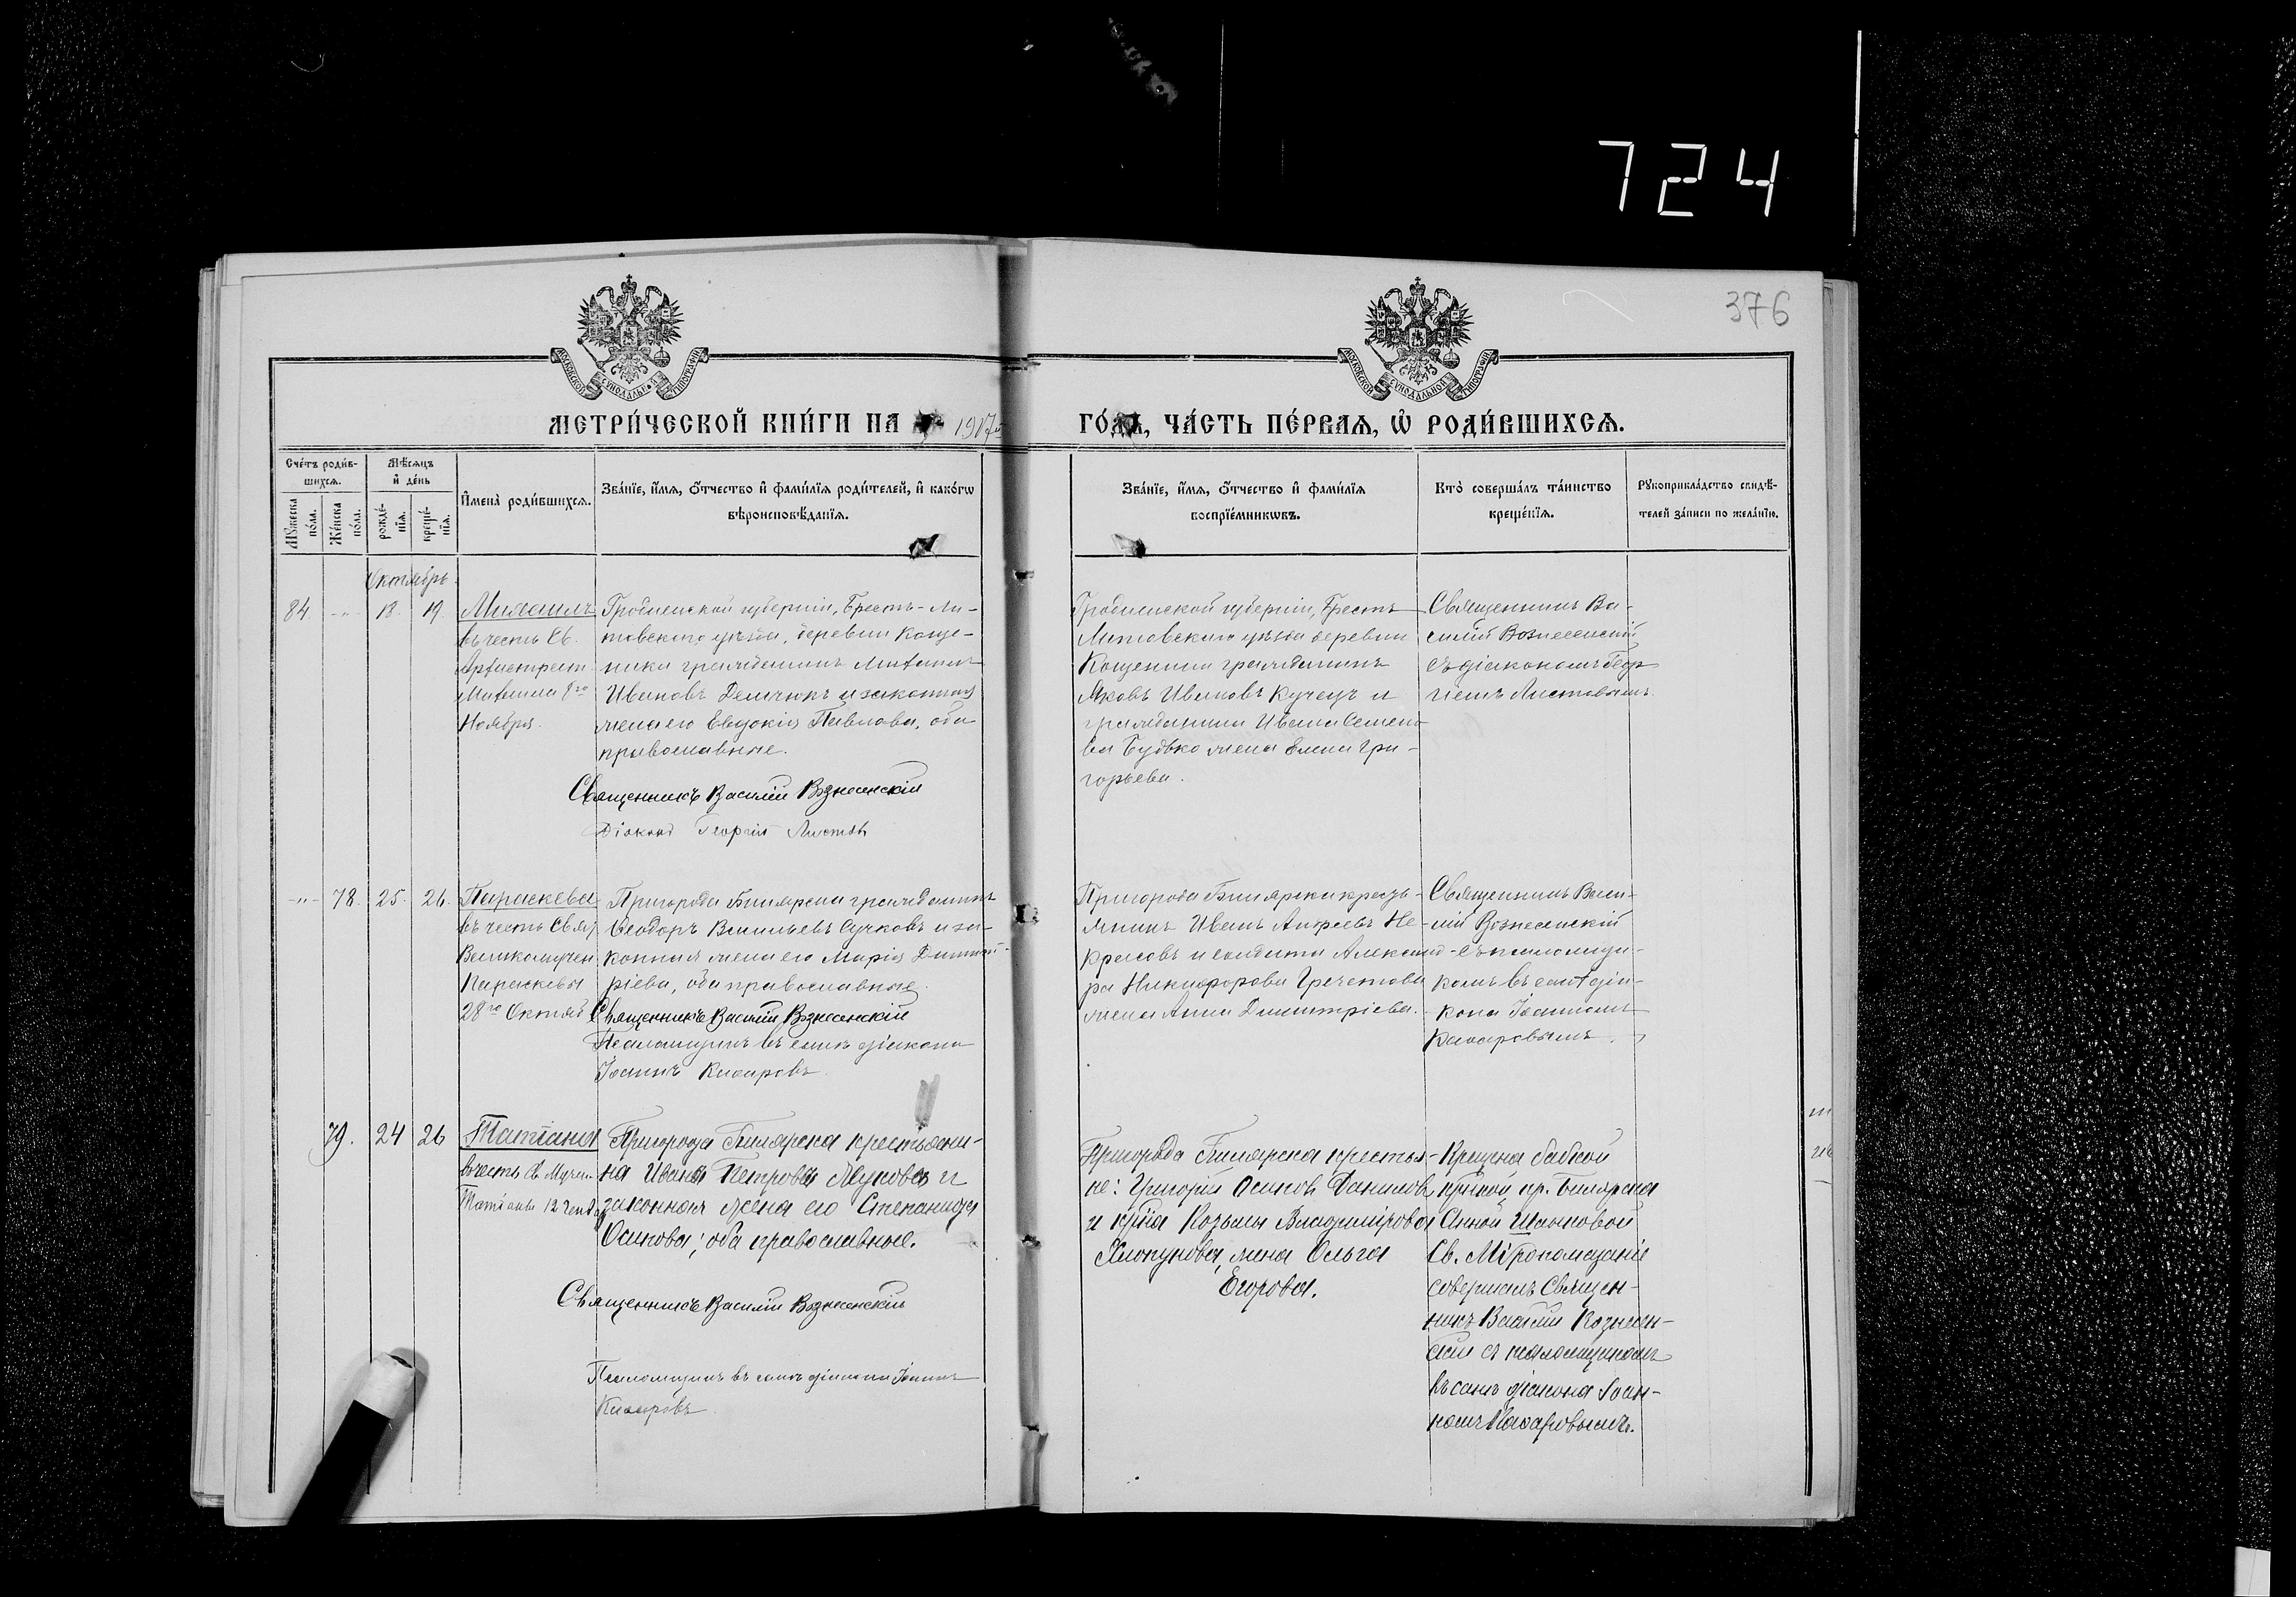 724
376
МОСКОВСКОЙ СѴНОДАЛЬНОЙ ТИПОГРАФІИ
МОСКОВСКОЙ СѴНОДАЛЬНОЙ ТИПОГРАФІИ
МЕТРИ́ЧЕСКОЙ КНИ́ГИ НА 1917
ГО́ДЪ, ЧА́СТЬ ПЕ́РВАЯ, Ѡ҆ РОДИ́ВШИХСЯ.
Сче́тъ роди́в-
шихся.
Мѣ́сяцъ
и҆ де́нь
Му́жеска
по́ла.
Же́нска
по́ла.
рожде́-
нїя.
креще́-
нїя.
И҆мена̀ роди́вшихся.
Зва́нїе, и҆́мя, ѻ҆́тчество и҆ фами́лїя роди́телей, и҆ како́гѡ
вѣроисповѣ́данїя.
Зва́нїе, и҆́мя, ѻ҆́тчество и҆ фами́лїя
воспрїе́мникѡвъ.
Кто̀ соверша́лъ та́инство
креще́нїя.
Рꙋкоприкла́дство свидѣ́-
телей за́писи по жела́нїю.
Октябрь
84. -"- 18. 19.
Михаилъ
въ честь Св.
Архистрат.
Михаила 8го
Ноября.
Гродненской губерніи, Брестъ-Ли-
товскаго уѣзда, деревни Коще-
ники гражданинъ Михаилъ
Ивановъ Демчюкъ и законная
жена его Евдокія Павлова, оба
православные.
Священникъ Василій Вознесенскій
Діаконъ Георгій Листовъ
Гродненской губерніи, Брестъ
Литовскаго уѣзда деревни
Кощеники гражданинъ
Яковъ Ивановъ Кучецъ и
гражданина Ивана Семено-
ва Будько жена Елена Гри-
горьева.
Священникъ Ва-
силій Вознесенскій
съ діакономъ Геор-
гіемъ Листовымъ.
-"- 78. 25. 26.
Параскева
въ честь Свят.
Великомучен.
Параскевы
28го Октяб.
Пригорода Билярска гражданинъ
Ѳеодоръ Васильевъ Сучковъ и за-
конная жена его Марія Димит-
ріева, оба православные.
Священникъ Василій Вознесенскій
Псаломщикъ въ санѣ діакона
Іоаннъ Казаровъ.
Пригорода Билярска кресть-
янинъ Иванъ Андреевъ Не-
красовъ и солдата Александ-
ра Никифорова Гречетова
жена Анна Димитріева.
Священникъ Васи-
лій Вознесенскій
съ псаломщи-
комъ въ санѣ діа-
кона Іоанномъ
Казаровымъ.
79. 24 26
Татіана
въ честь Св. Мучен.
Татіаны 12 Генв.
Пригорода Билярска крестьяни-
на Ивана Петрова Лукова и
законная жена его Степанида
Осипова; оба православные.
Священникъ Василій Вознесенскій
Псаломщикъ въ санѣ діакона Іоаннъ
Казаровъ.
Пригорода Билярска крестья-
не: Григорій Осиповъ Даниловъ
и кр-на Козьмы Владимірова
Хлопунова, жена Ольга
Егорова.
Крещена бабкой
пр. Билярска
Анной
Св. Мѵропомазаніе
совершалъ Священ-
никъ Василій Вознесен-
скій съ псаломщикомъ
въ санѣ діакона Іоан-
номъ Казаровымъ.